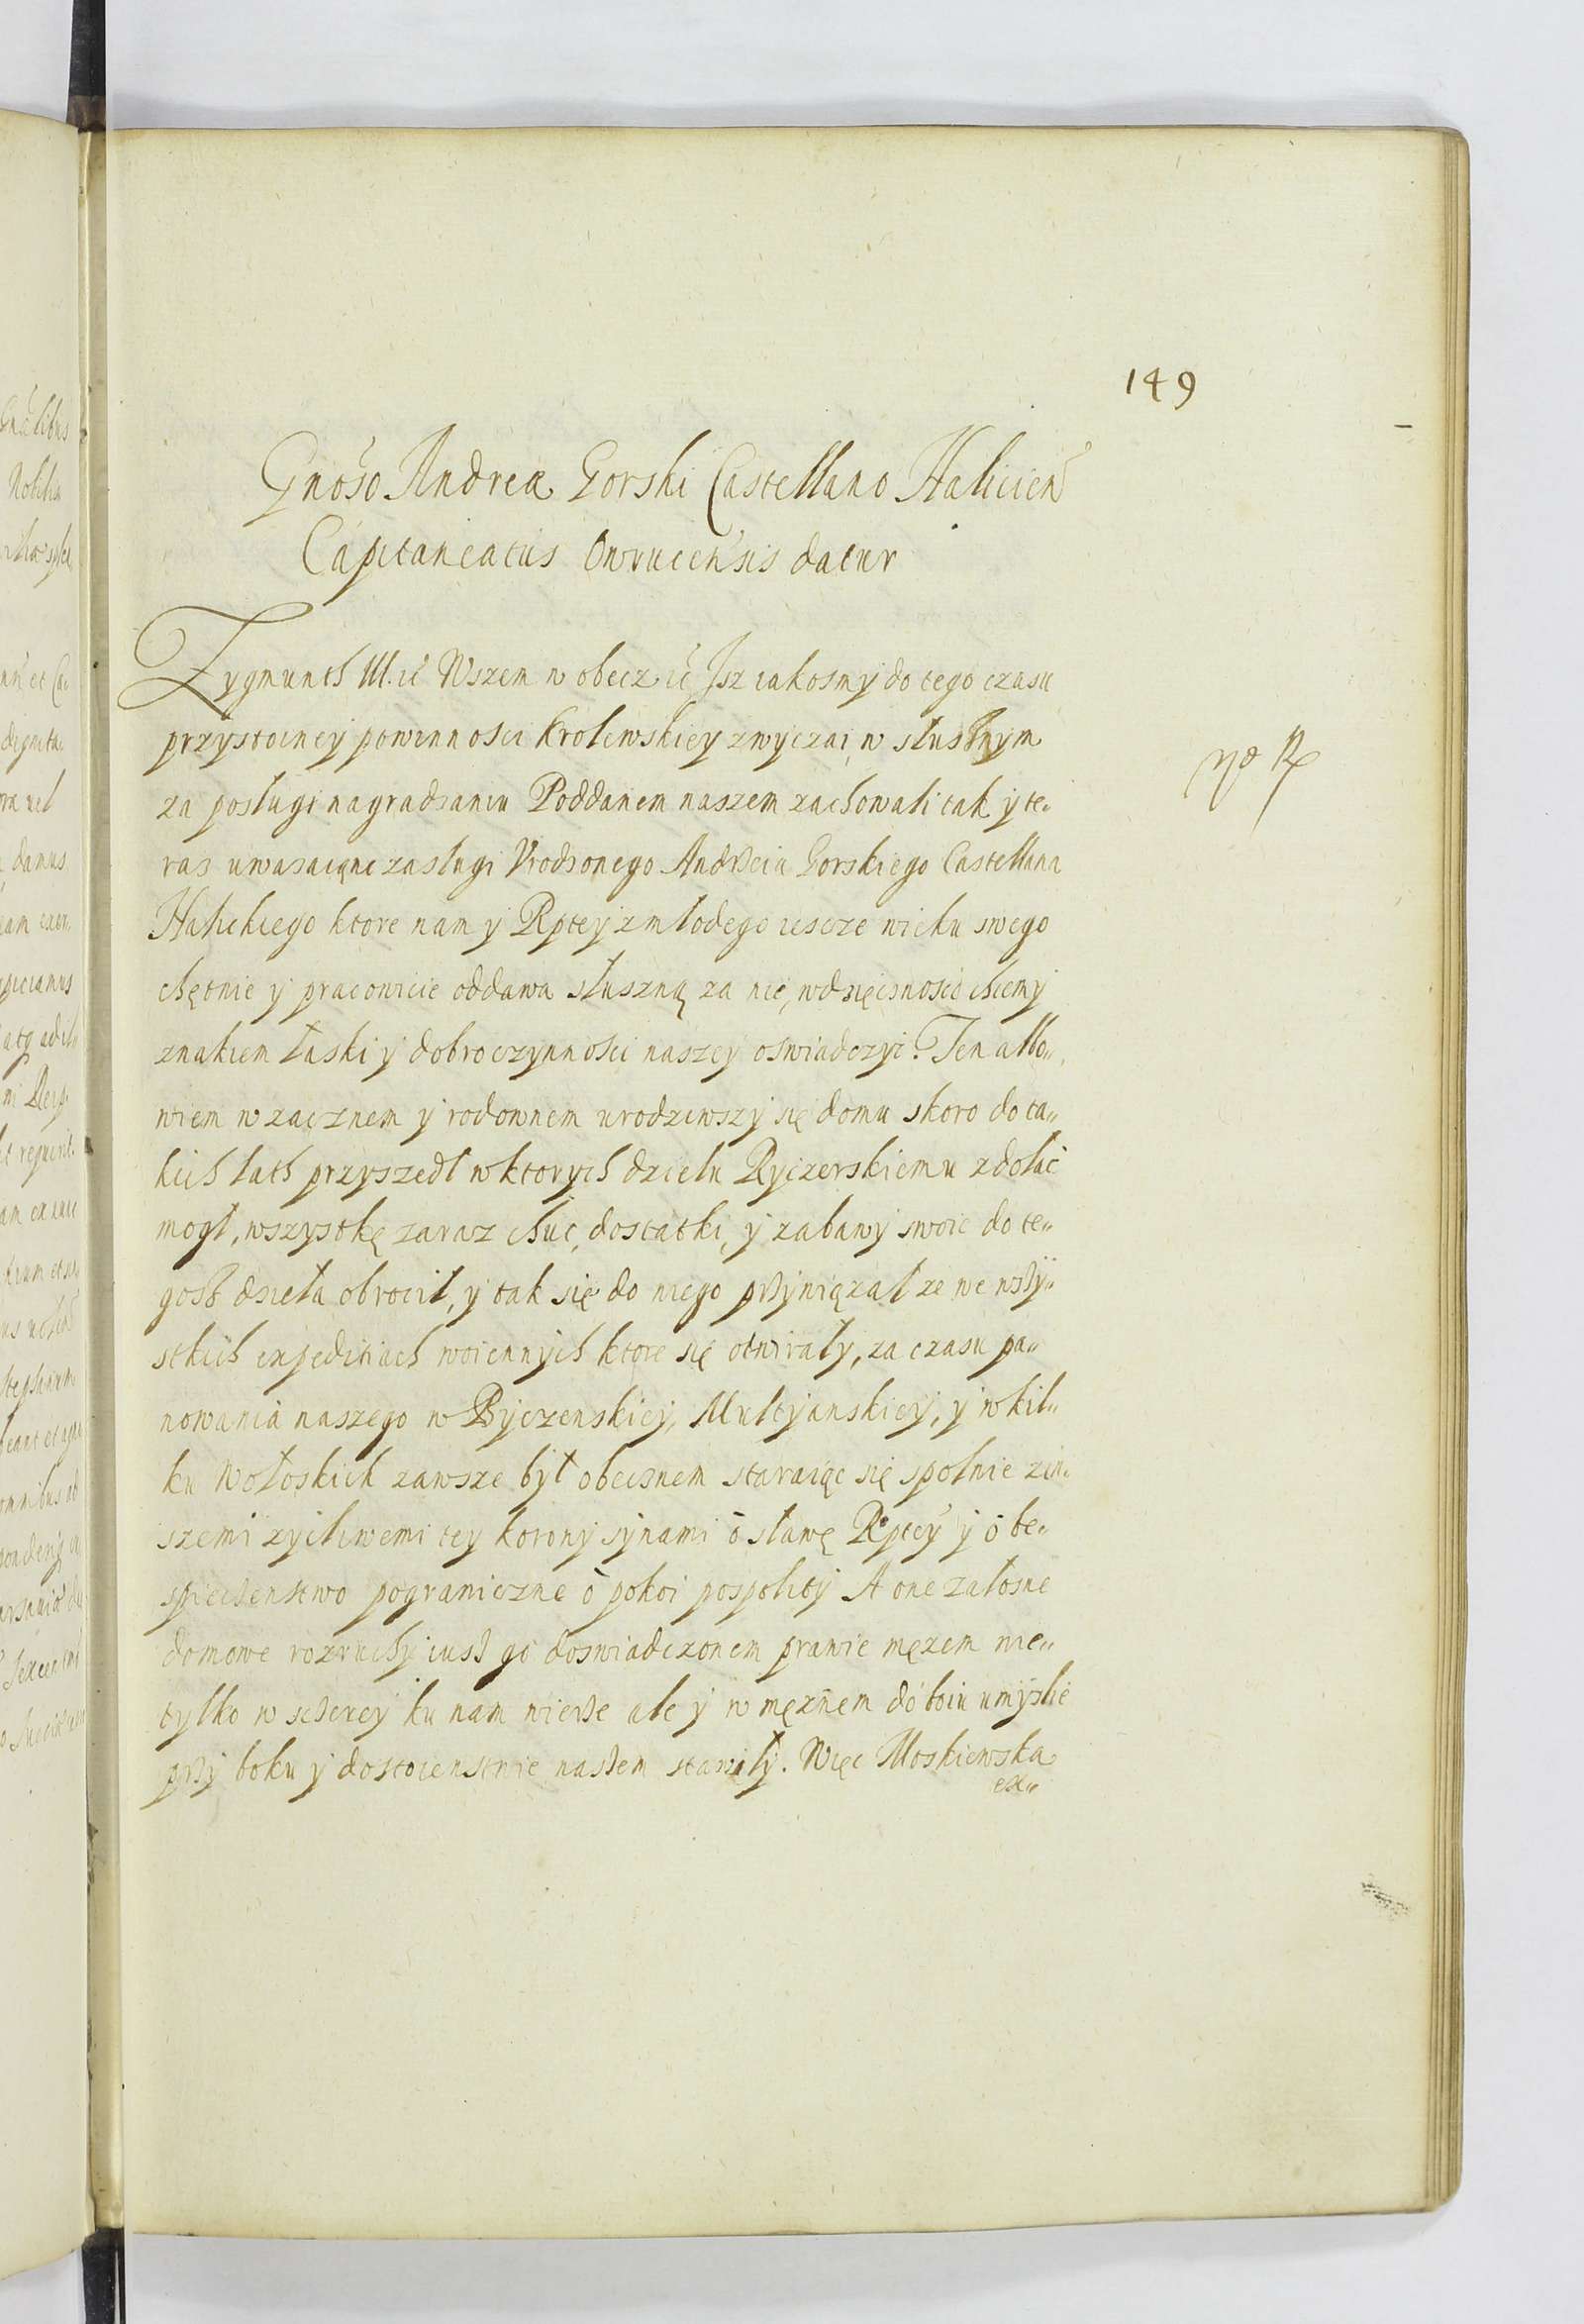 149
Gnoso Andreæ Gorski Castellano Halicien
Capitaneatus Owrucensis datur
Zygmunth III. ić Wszem w obecz ić Jsz iakosmy do tego czasu
przystoiney powinnosci Krolewskiey zwyczai, w słusznym
za posługi nagradzaniu Poddanem naszem zachowali tak y te„
ras uwasaiąnc zasługi Vrodsonego Andrzeia Gorskiego Castellana
Halickiego ktore nam y Rptey z młodego iescze wieku swego
chętnie y pracowicie oddawa słuszną za nie, wdzięcsnosc chcemy
znakiem łaski y dobroczynnosci naszey oswiadczyć. Ten albo„
wiem w zacznem y rodownem urodziwszy się domu skoro do ta„
kich lath przyszedł w ktorych dziełu Ryczerskiemu zdołać
mogł, wszystkę zaraz chuc, dostatki, y zabawy swoie do te„
gosz dzieła obrocił, y tak się do niego przywiązał ze we wszy„
stkich expeditiach woiennych ktore się otwirały, za czasu pa„
nowania naszego w Byczenskiey, Multyanskiey, y w kil„
ku Wołoskich zawsze był obecsnem staraiąc się spolnie z in„
szemi zyczliwemi tey korony synami o sławę Rptey y o be„
spieczenstwo pograniczne o pokoi pospolity A one załosne
domowe rozruchy iusz go doswiadczonem prawie męzem nie„
tylko w sczerey ku nam wierze ale y w męznem do boiu umysle
przy boku y dostoienstwie naszem stawiły. Więc Moskiewska
ex„